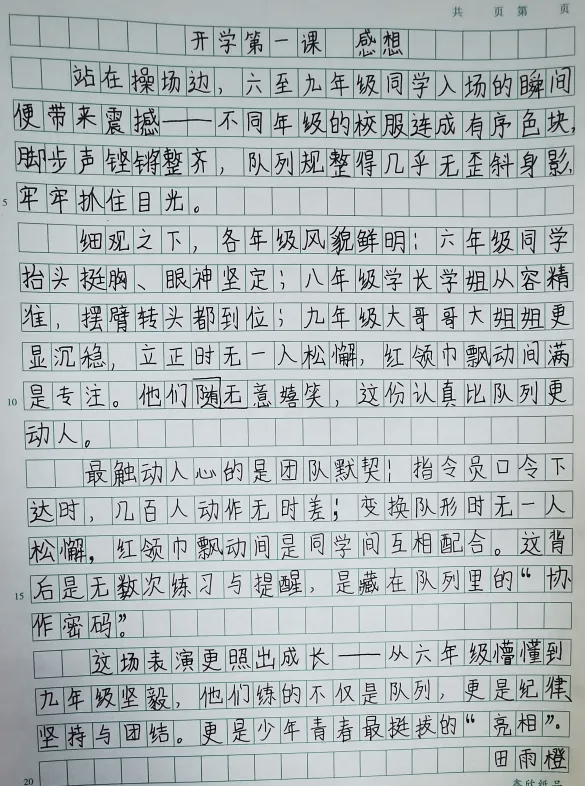 共 页 第 页
开学第一课 感想
站在操场边，六至九年级同学入场的瞬间
便带来震撼——不同年级的校服连成有序色块，
脚步声铿锵整齐，队列规整得几乎无歪斜身影，
5 牢牢抓住目光。
细观之下，各年级风貌鲜明：六年级同学
抬头挺胸、眼神坚定；八年级学长学姐从容精
准，摆臂转头都到位；九年级大哥哥大姐姐更
显沉稳，立正时无一人松懈，红领巾飘动间满
10 是专注。他们随无意嬉笑，这份认真比队列更
动人。
最触动人心的是团队默契：指令员口令下
达时，几百人动作无时差；变换队形时无一人
松懈，红领巾飘动间是同学间互相配合。这背
15 后是无数次练习与提醒，是藏在队列里的“协
作密码”。
这场表演更照出成长——从六年级懵懂到
九年级坚毅，他们练的不仅是队列，更是纪律、
坚持与团结。更是少年青春最挺拔的“亮相”。
田雨橙
20